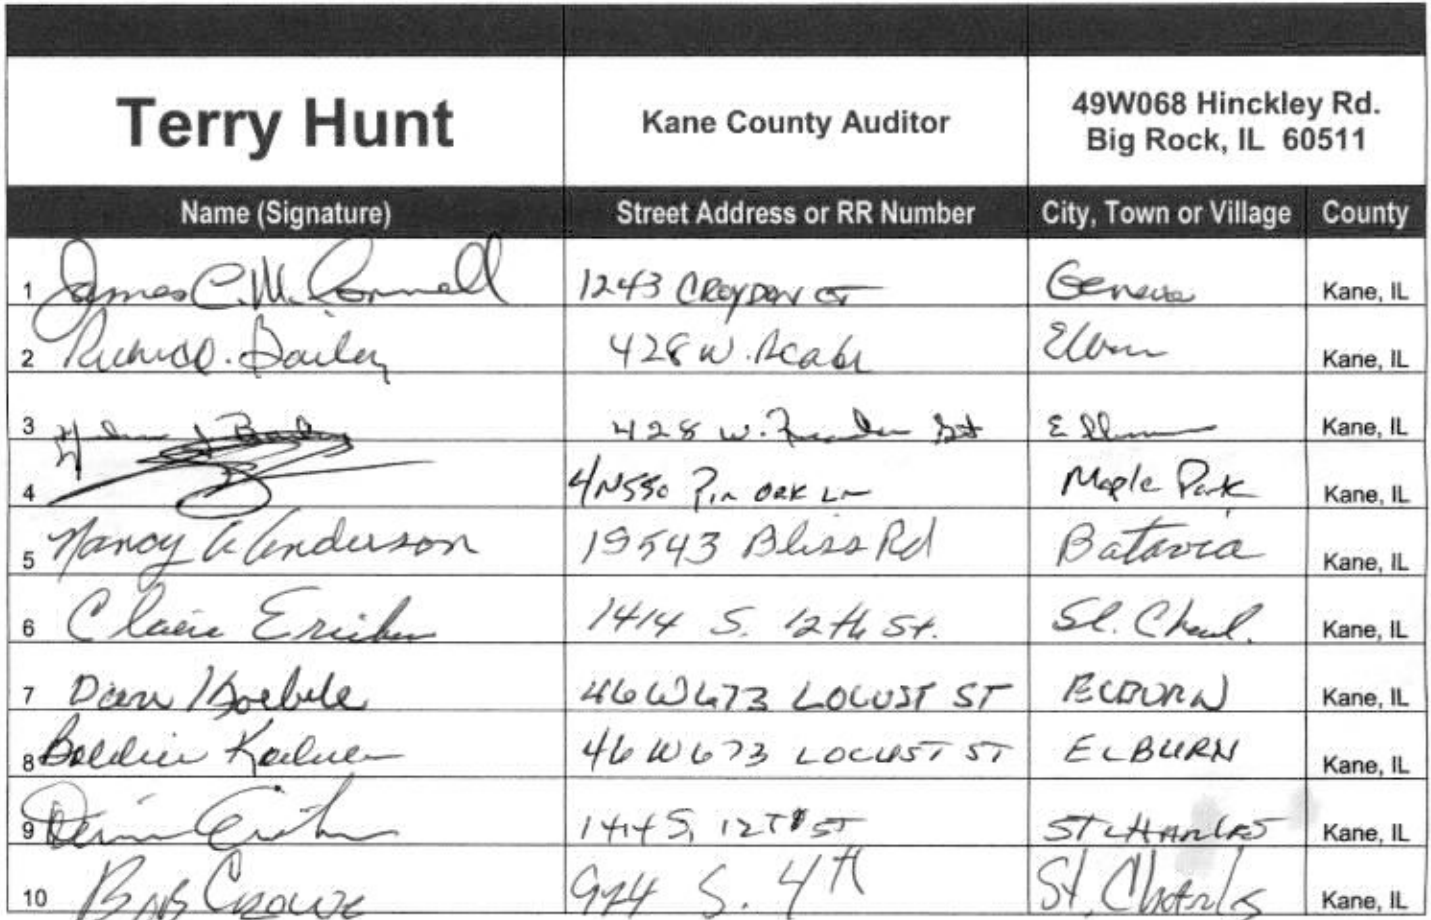 Terry Hunt
Kane County Auditor
49W068 Hinckley Rd.
Big Rock, IL 60511
Name (Signature) Street Address or RR Number City, Town or Village County
1 James C. McConnell 1243 CROYDON CT Geneva Kane, IL
2 Bailey 428 W. Kane, IL
3 428 W. St Kane, IL
4 4N550 Pin OAK Ln Maple Park Kane, IL
5 Nancy Anderson 19543 Bliss Rd Batavia Kane, IL
6 1414 S. 12th St. St. Kane, IL
7 46W673 LOCUST ST ELBURN Kane, IL
8 46W673 LOCUST ST ELBURN Kane, IL
9 1414 S, 12TH ST ST CHARLES Kane, IL
10 Bob Crowe 974 S. 4th St. Charles Kane, IL